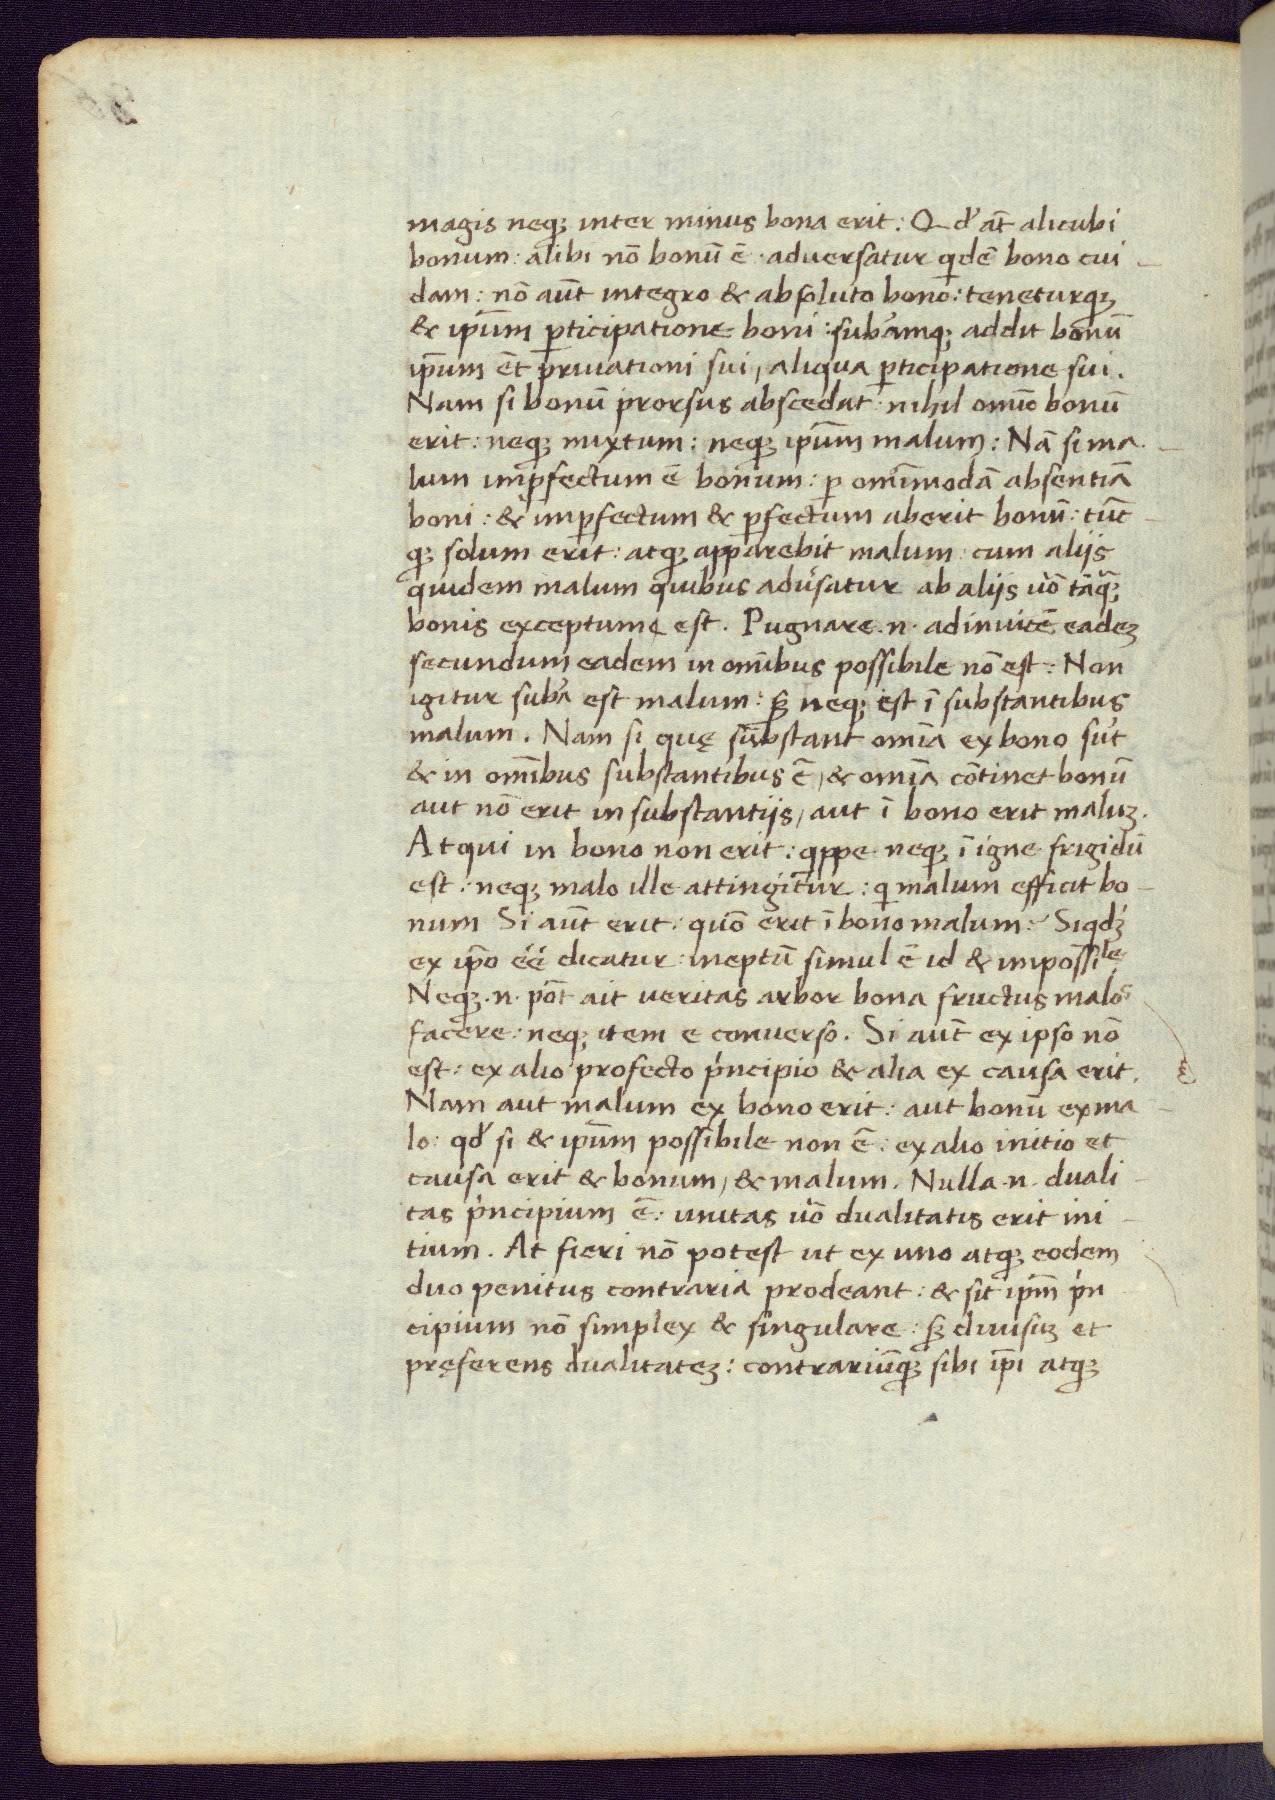 magis neqꝫ inter minus bona erit: Qd' āt alicubi
bonum: alibi nō bonū ē adversatur qdē bono cui
dam: nō aūt integro & absoluto bono: teneturqꝫ
& ipūm ꝑticipatione boni: subāmqꝫ addit bonū
ip̄um ēt privationi sui, aliqua ꝑticipatione sui.
Nam si bonū prorsus abscedat nihil omīo bonū
erit: neqꝫ mixtum: neqꝫ ipūm malum: Nā si ma
lum imꝑfectum ē bonum: ꝑ omīmodā absentiā
boni: & imꝑfectum & ꝑfectum aberit bonū: tūt
qꝫ solum erit: atqꝫ apparebit malum: cum aliis
quidem malum quibus adūsatur ab aliis uō tāqꝫ
bonis exceptumq est. Pugnare .n. adinuicē eadeꝫ
secundum eadem in omībus possibile nō est: Non
igitur subā est malum: sꝫ neqꝫ est ī substantibus
malum. Nam si quę substant omīa ex bono sūt
& in omībus substantibus ē, & omīa cōtinet bonū
aut nō erit in substantijs, aut ī bono erit maluꝫ.
Atqui in bono non erit: qppe neqꝫ ī igne frigidū
est: neqꝫ malo ille attingitur: q malum efficit bo
num Si aūt erit: quō erit ī bono malum: Siqdꝫ
ex ip̄o ēē dicatur ineptū simul ē id & impossīle
Neqꝫ .n. pōt ait veritas arbor bona fructus malos
facere: neqꝫ item e converso. Si aūt ex ipso nō
est: ex alio profecto p'ncipio & alia ex causa erit.
Nam aut malum ex bono erit: aut bonū ex ma
lo: qd' si & ipūm possibile non ē: ex alio initio et
causa erit & bonum, & malum. Nulla .n. duali
tas p'ncipium ē: unitas uō dualitatis erit ini
tium. At fieri nō potest ut ex uno atqꝫ eodem
duo penitus contraria prodeant: & sit ip̄m p'n
cipium nō simplex & singulare: sꝫ divisuꝫ et
pręferens dualitateꝫ: contrariūqꝫ sibi ip̄i atqꝫ